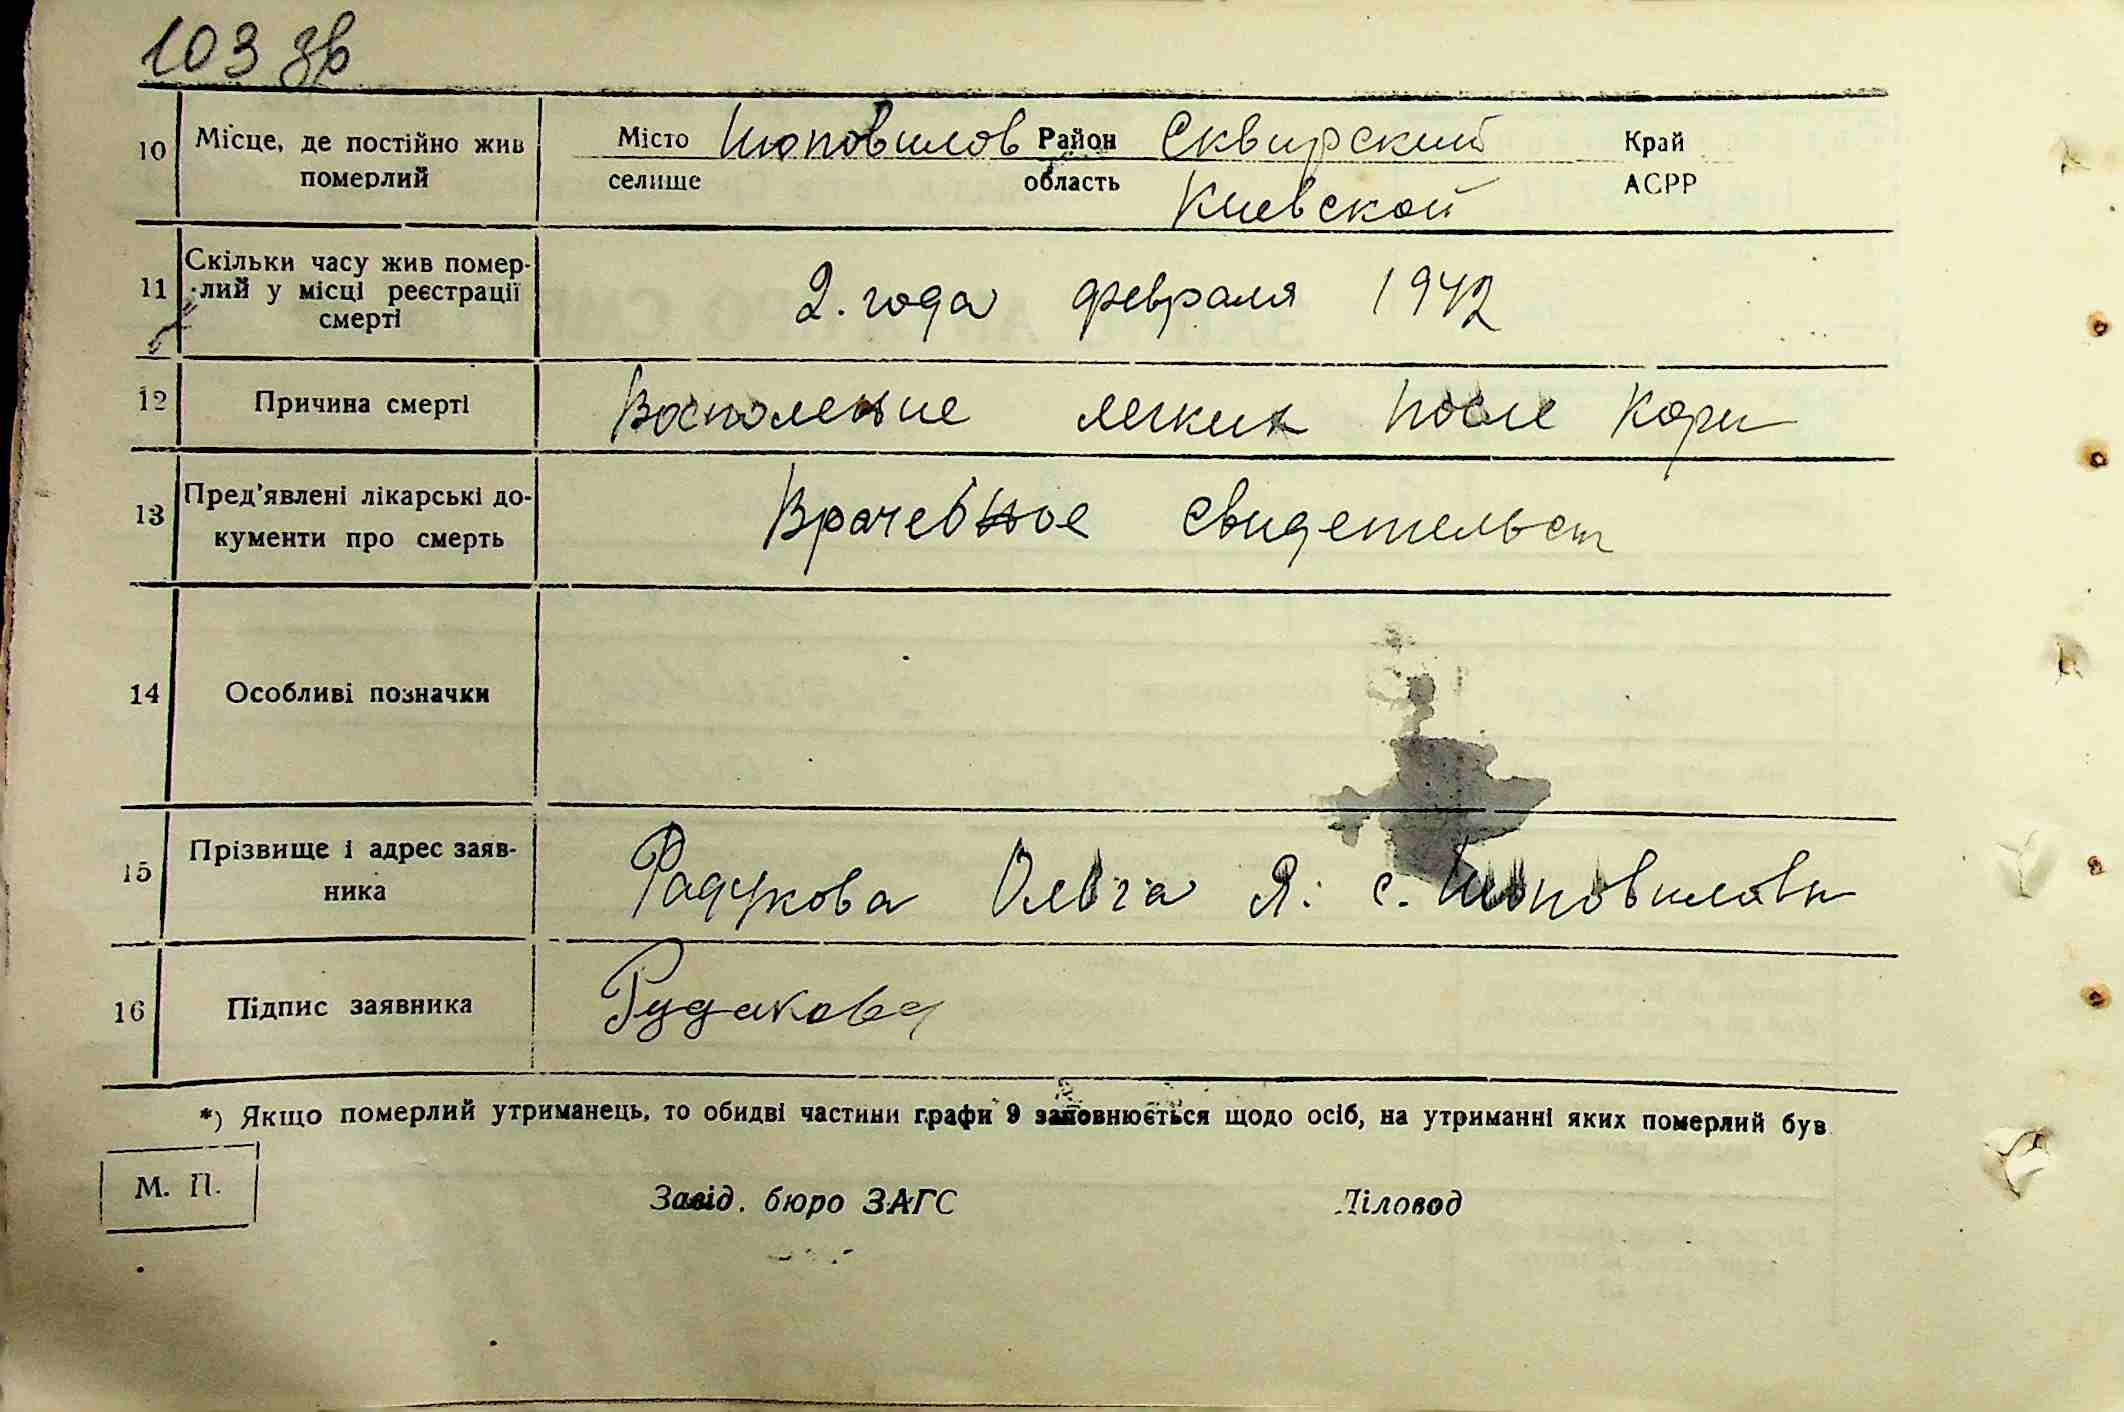 103 зв
10 Місце, де постійно жив померлий
Місто Район Сквирский Край
селище область Киевской АСРР
11 Скільки часу жив помер-
лий у місці реєстрації
смерті
2. года февраля 1942
12 Причина смерті Восполение легких после кори
13 Пред'явлені лікарські до-
кументи про смерть
Врачебное свидетельст
14 Особливі позначки
15 Прізвище і адрес заяв-
ника
Радукова Ольга Я. с.
16 Підпис заявника Рудакова
*) Якщо померлий утриманець, то обидві частини графи 9 заповнюється щодо осіб, на утриманні яких померлий був
М. П.
Завід. бюро ЗАГС Діловод